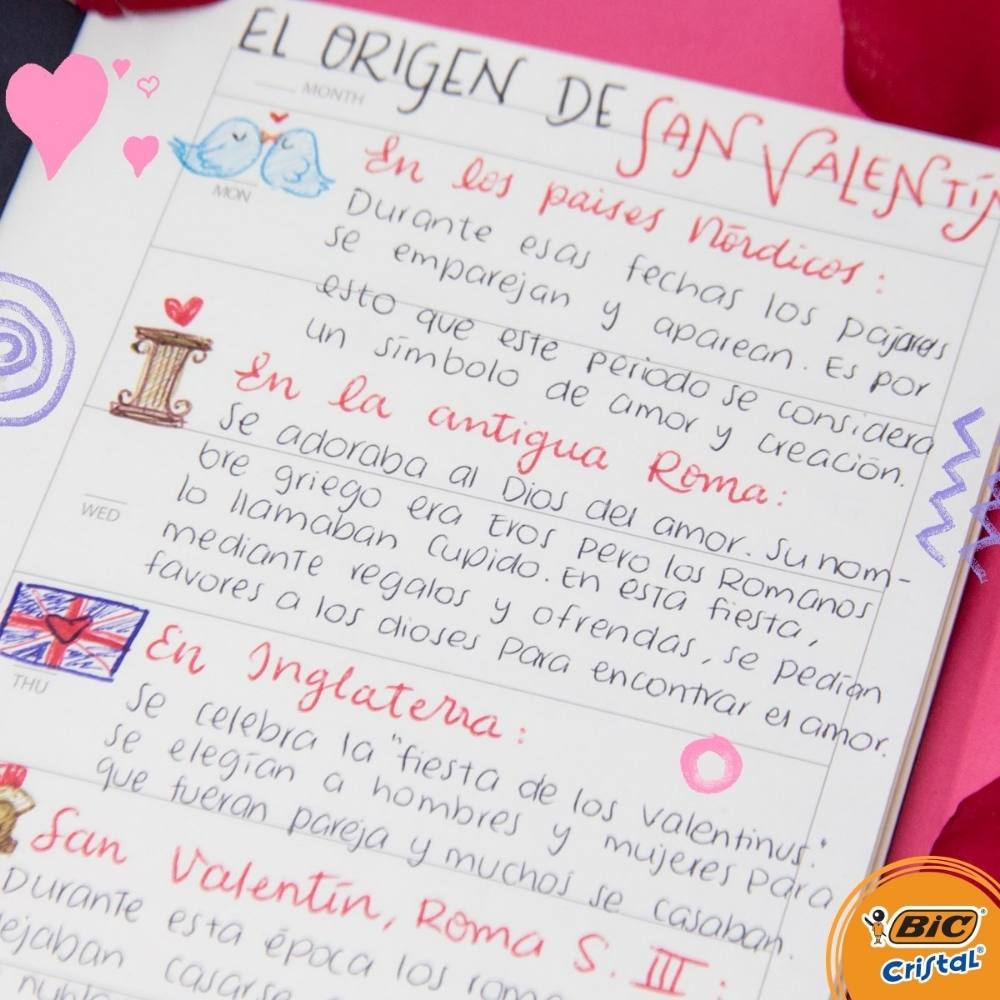 EL ORIGEN DE SAN VALENTÍN
MONTH
En los paises Nórdicos:
MON
Durante esas fechas los pajaros
se emparejan y aparean. Es por
esto que este periodo se considera
un símbolo de amor y creación.
En la antigua Roma:
Se adoraba al Dios del amor. Su nom-
bre griego era Eros pero los Romanos
lo llamaban Cupido. En esta fiesta,
WED
mediante regalos y ofrendas, se pedían
favores a los dioses para encontrar el amor.
En Inglaterra:
THU
Se celebra la "fiesta de los Valentinus."
se elegían a hombres y mujeres para
que fueran pareja y muchos se casaban.
San Valentín, Roma S. III:
Durante esta época los
casarse
BIC
Cristal